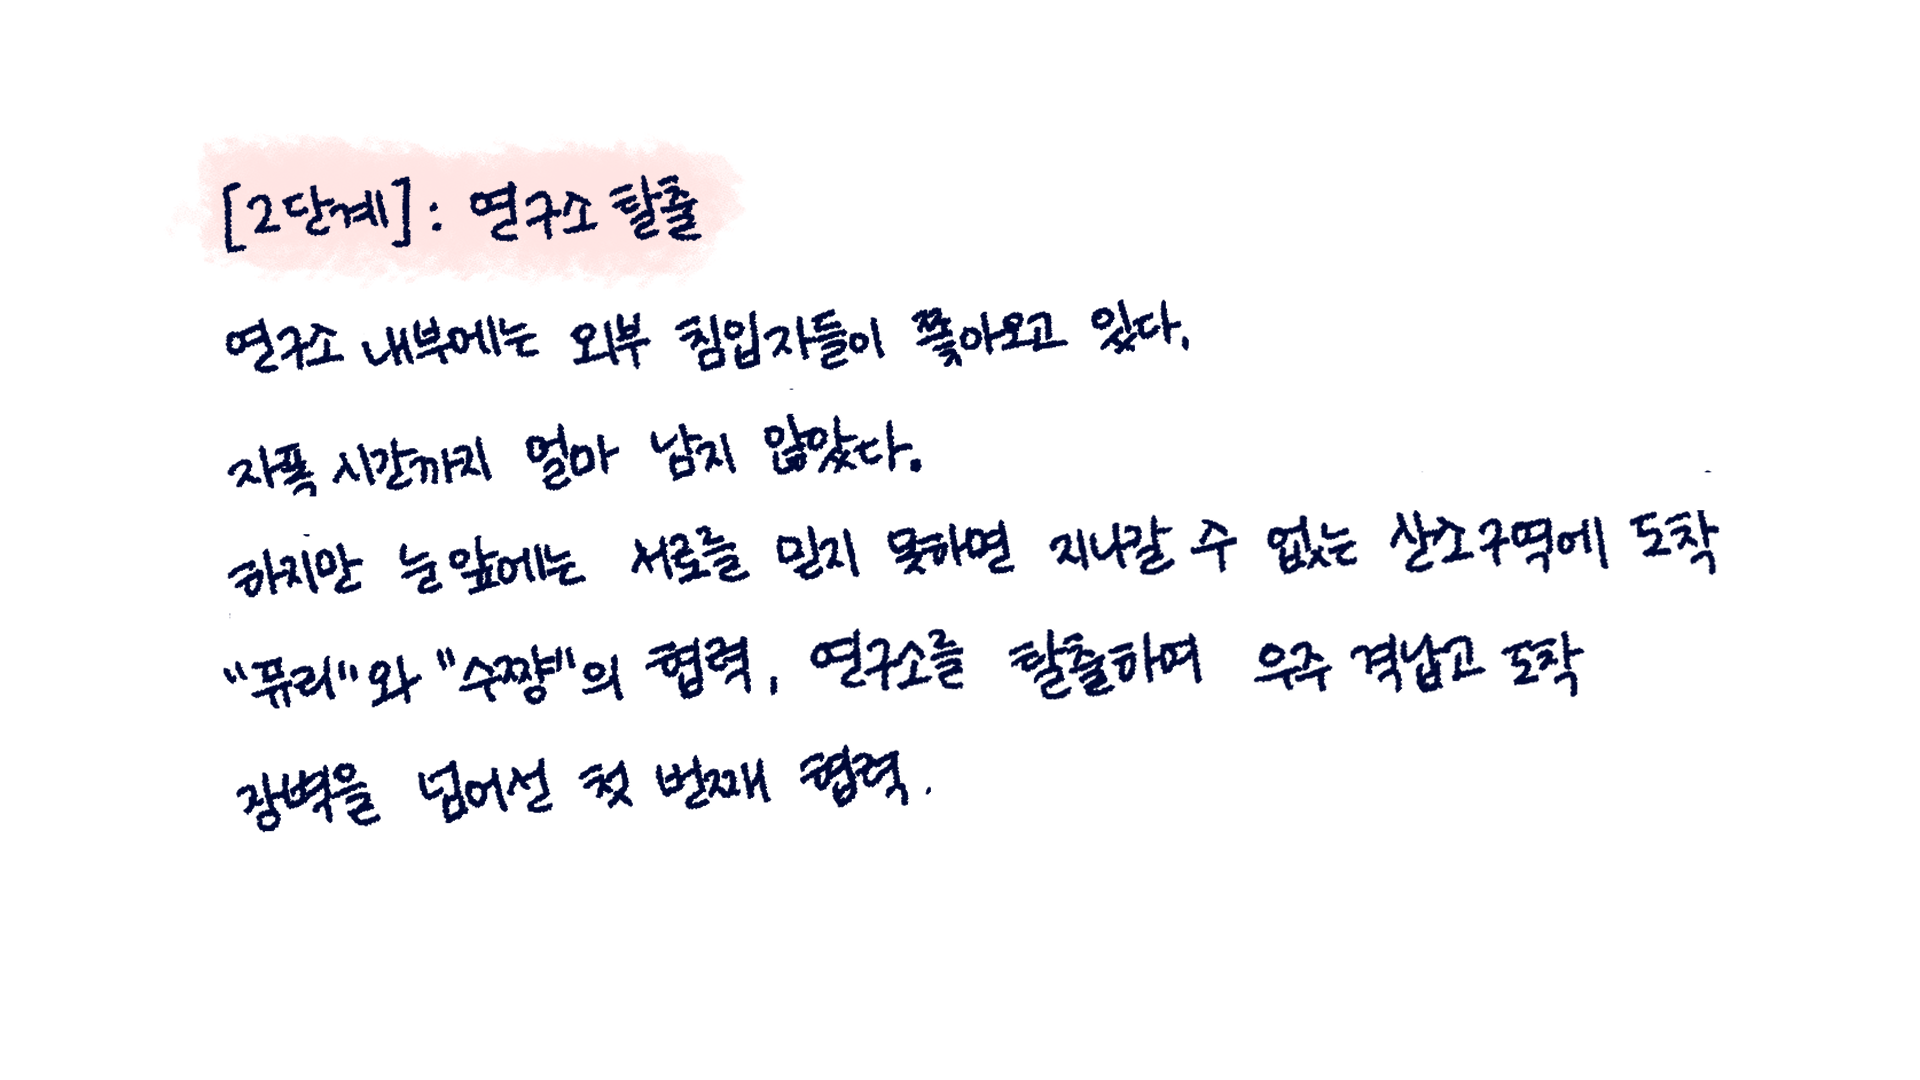 [2단계]: 연구소 탈출
연구소 내부에는 외부 침입자들이 쫓아오고 있다,
자폭 시간까지 얼마 남지 않았다.
하지만 눈앞에는 서로를 믿지 못하면 지나갈 수 없는 산소구역에 도착
"퓨리"와 "수쨩"의 협력, 연구소를 탈출하며 우주 격납고 도착
장벽을 넘어선 첫 번째 협력.